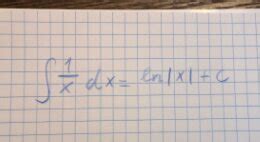 ∫ 1/x dx = ln|x| + c